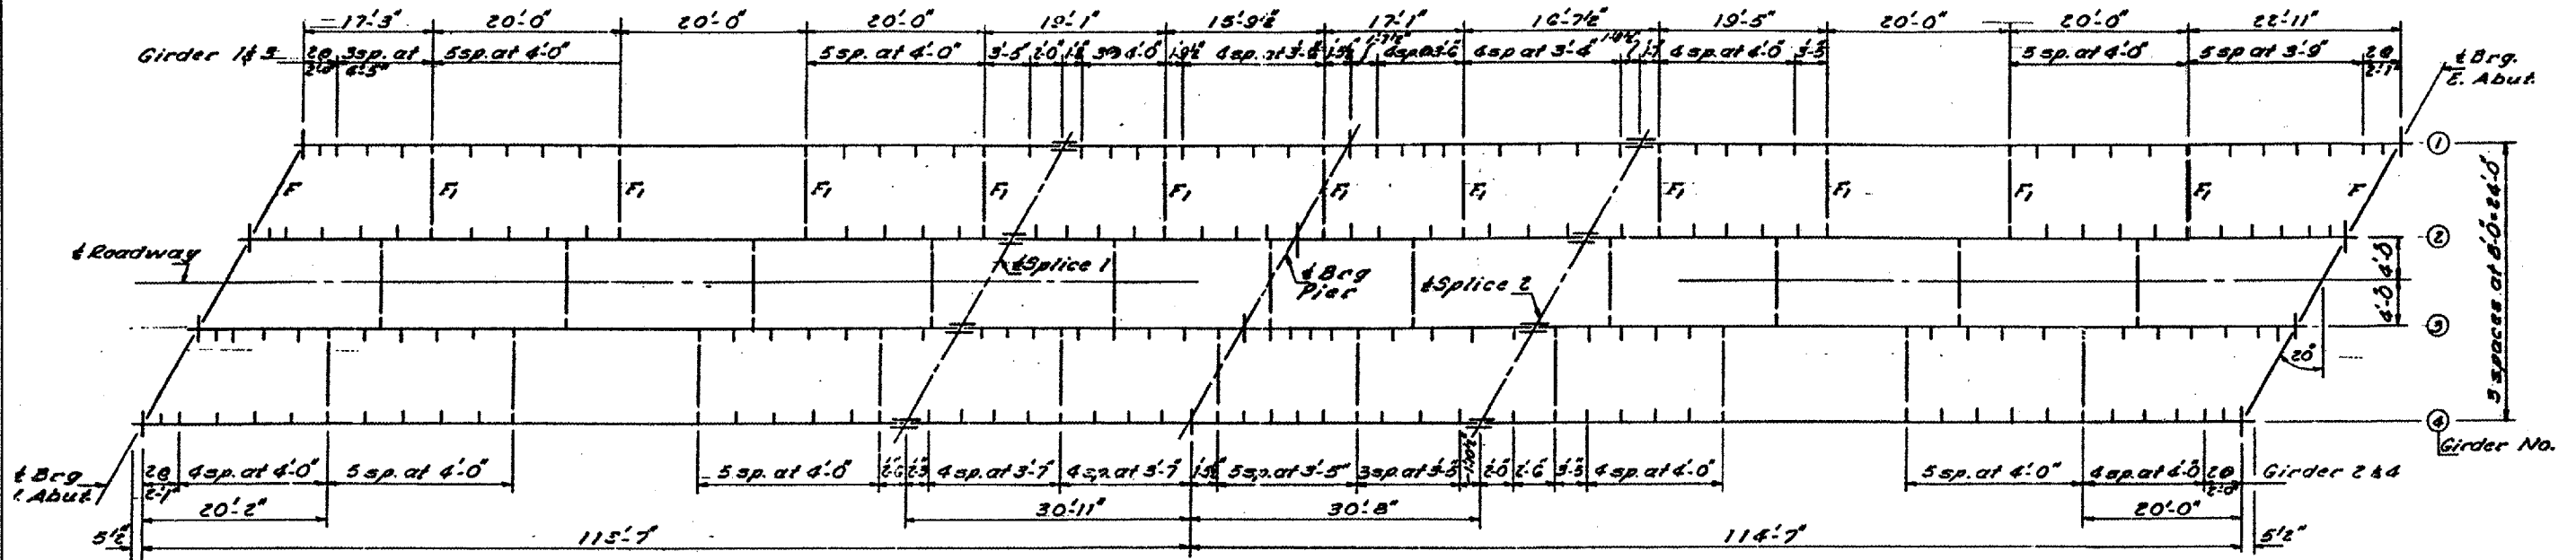 17'-3" 20'-0" 20'-0" 20'-0" 19'-1" 15'-9½" 17'-1" 16'-7½" 19'-5" 20'-0" 20'-0" 22'-11"
Girder 1&3 2@ 2'-0" 3sp. at 4'-5" 5sp. at 4'-0" 5 sp. at 4'-0" 3'-5" 2'-0" 3@ 4'-0" 4sp. at 4sp. at 3'-4" 4 sp. at 4'-0" 3'-5" 5 sp. at 4'-0" 5 sp. at 3'-9" 2@ 2'-1"
℄ Brg.
E. Abut.
1
F F1 F1 F1 F1 F1 F1 F1 F1 F1 F1 F1 F
℄ Roadway
2
℄ Splice 1
℄ Brg
Pier
℄ Splice 2
4'-0" 4'-0"
3 spaces at 8'-0"=24'-0"
3
20°
4
Girder No.
℄ Brg
Abut.
2@ 2'-1" 4sp. at 4'-0" 5 sp. at 4'-0" 5 sp. at 4'-0" 4 sp. at 3'-7" 4 sp. at 3'-7" 5 sp. at 3'-5" 3sp. at 2'-0" 2'-6" 3'-5" 4 sp. at 4'-0" 5 sp. at 4'-0" 4 sp. at 4'-0" 2@ 2'-0" Girder 2&4
20'-2" 30'-11" 30'-8" 20'-0"
5½" 115'-7" 114'-7" 5½"